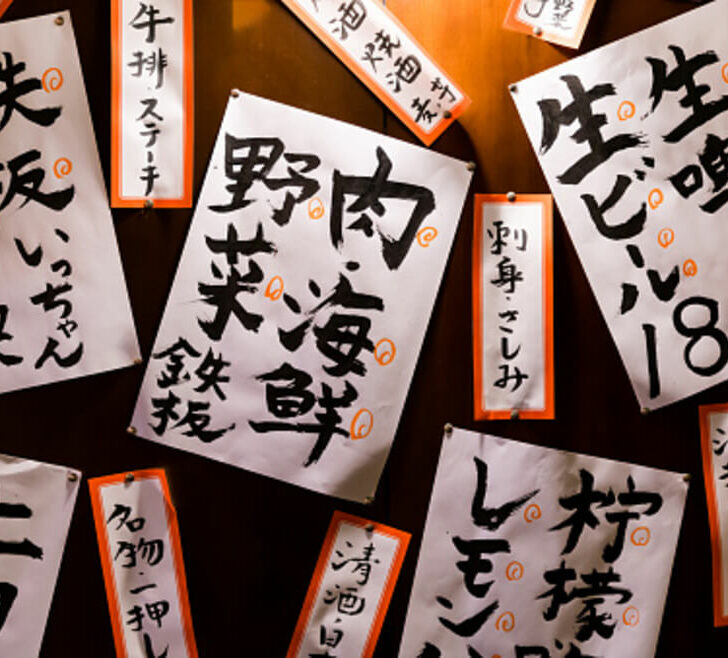 鉄板
いっちゃん
牛排・ステーキ
酒焼酒芋
麦
野菜
肉・海鮮
野菜
鉄板
刺身・さしみ
生
生ビール
18
名物一押し
清酒白
檸檬
レモン